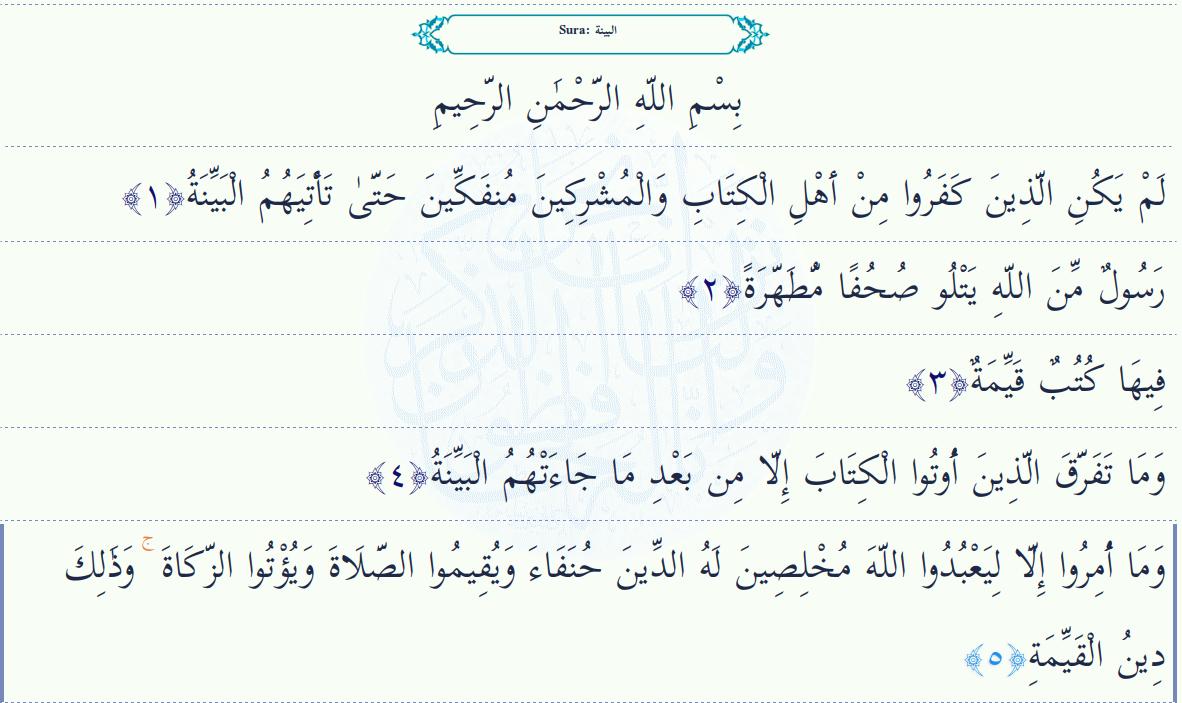 Sura: البينة
بِسْمِ اللَّهِ الرَّحْمَٰنِ الرَّحِيمِ
لَمْ يَكُنِ الَّذِينَ كَفَرُوا مِنْ أَهْلِ الْكِتَابِ وَالْمُشْرِكِينَ مُنفَكِّينَ حَتَّىٰ تَأْتِيَهُمُ الْبَيِّنَةُ﴿١﴾
رَسُولٌ مِّنَ اللَّهِ يَتْلُو صُحُفًا مُّطَهَّرَةً﴿٢﴾
فِيهَا كُتُبٌ قَيِّمَةٌ﴿٣﴾
وَمَا تَفَرَّقَ الَّذِينَ أُوتُوا الْكِتَابَ إِلَّا مِن بَعْدِ مَا جَاءَتْهُمُ الْبَيِّنَةُ﴿٤﴾
وَمَا أُمِرُوا إِلَّا لِيَعْبُدُوا اللَّهَ مُخْلِصِينَ لَهُ الدِّينَ حُنَفَاءَ وَيُقِيمُوا الصَّلَاةَ وَيُؤْتُوا الزَّكَاةَ ۚ وَذَٰلِكَ
دِينُ الْقَيِّمَةِ﴿٥﴾